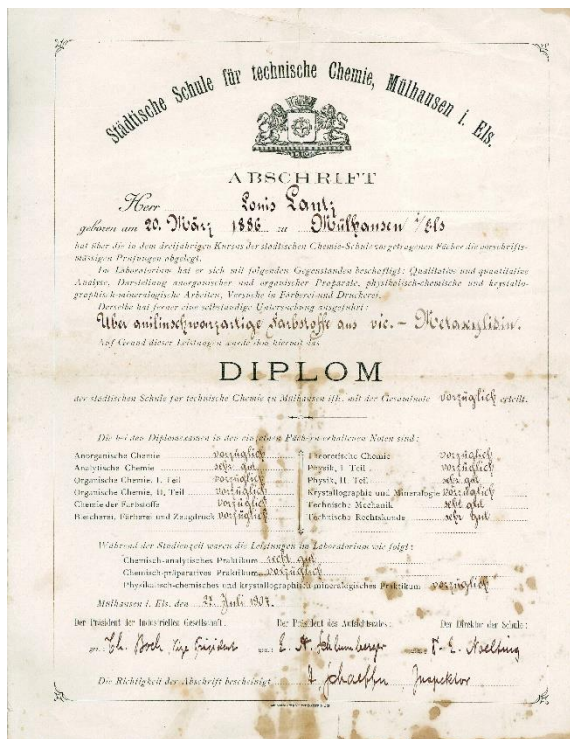 Städtische Schule für technische Chemie, Mülhausen i. Els.
ABSCHRIFT
Herr Louis Lantz
geboren am 20. März 1886 zu Mülhausen i/Els
hat über die in dem dreijährigen Kursus der städtischen Chemie-Schule vorgetragenen Fächer die vorschrifts-
mässigen Prüfungen abgelegt.
Im Laboratorium hat er sich mit folgenden Gegenständen beschäftigt: Qualitative und quantitative
Analyse, Darstellung anorganischer und organischer Präparate, physikalisch-chemische und krystallo-
graphisch-mineralogische Arbeiten, Versuche in Färberei und Druckerei.
Derselbe hat ferner eine selbständige Untersuchung ausgeführt:
Über anilinschwarzartige Farbstoffe aus vic. - Metaxylidin.
Auf Grund dieser Leistungen wurde ihm hiermit das
DIPLOM
der städtischen Schule für technische Chemie zu Mülhausen i/E. mit der Gesamtnote vorzüglich erteilt.
Die bei den Diplomexamen in den einzelnen Fächern erhaltenen Noten sind:
Anorganische Chemie vorzüglich
Analytische Chemie sehr gut
Organische Chemie, I. Teil vorzüglich
Organische Chemie, II. Teil vorzüglich
Chemie der Farbstoffe vorzüglich
Bleicherei, Färberei und Zeugdruck vorzüglich
Theoretische Chemie vorzüglich
Physik, I. Teil vorzüglich
Physik, II. Teil sehr gut
Krystallographie und Mineralogie vorzüglich
Technische Mechanik sehr gut
Technische Rechtskunde sehr gut
Während der Studienzeit waren die Leistungen im Laboratorium wie folgt:
Chemisch-analytisches Praktikum sehr gut
Chemisch-präparatives Praktikum vorzüglich
Physikalisch-chemisches und krystallographisch-mineralogisches Praktikum vorzüglich
Mülhausen i. Els. den Juli 1907.
Der Präsident der Industriellen Gesellschaft:
Der Präsident des Aufsichtsrates:
Der Direktor der Schule:
Th. Boch, Vize Präsident
E. A. Schlumberger
E. Noelting
Die Richtigkeit der Abschrift bescheinigt Inspektor